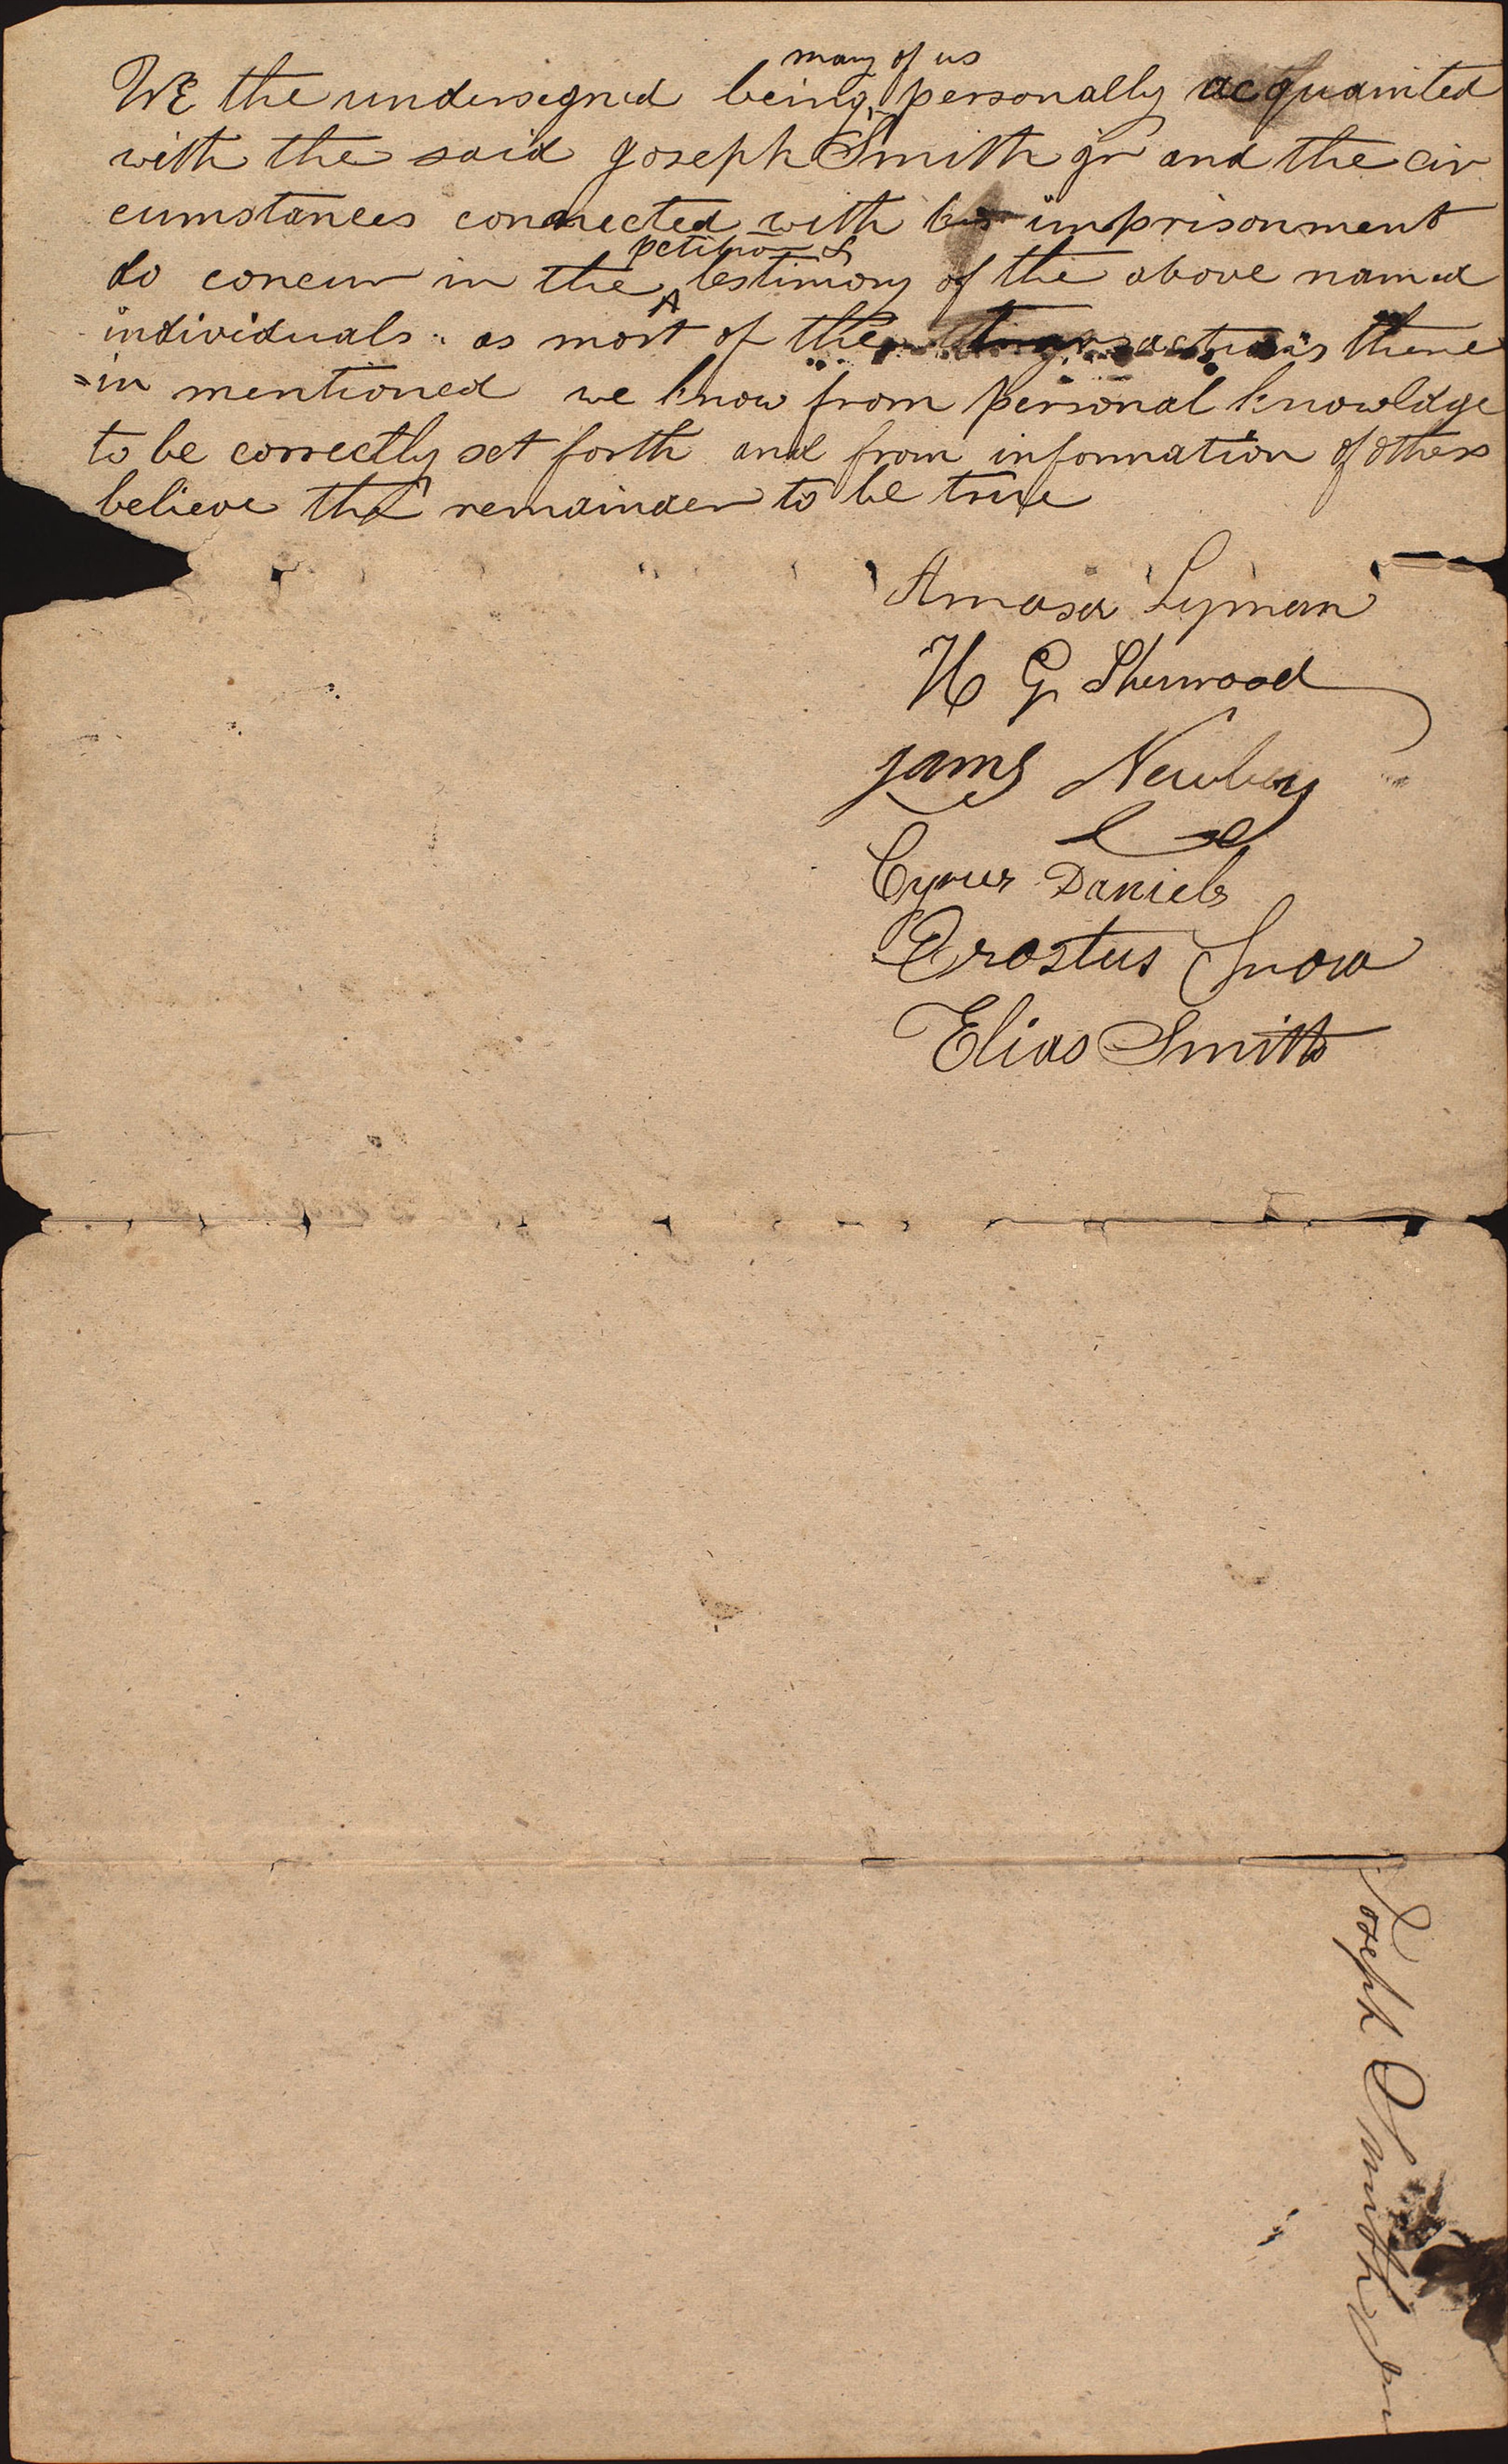 many of us
WE the undersegned being personally acquainted
with the said Joseph Smith jr and the cir
cumstances connected with his imprisonment
do concur in the testimony of the above named
petition &
individuals. as most of the transactions there
=in mentioned we know from personal knowldge
to be correctly set forth and from information of others
believe the remainder to be true
Amasa Lyman
H G Sherwood
James Newbery
Cyrus Daniels
Erastus Snow
Elias Smith
Joseph Smith Jr